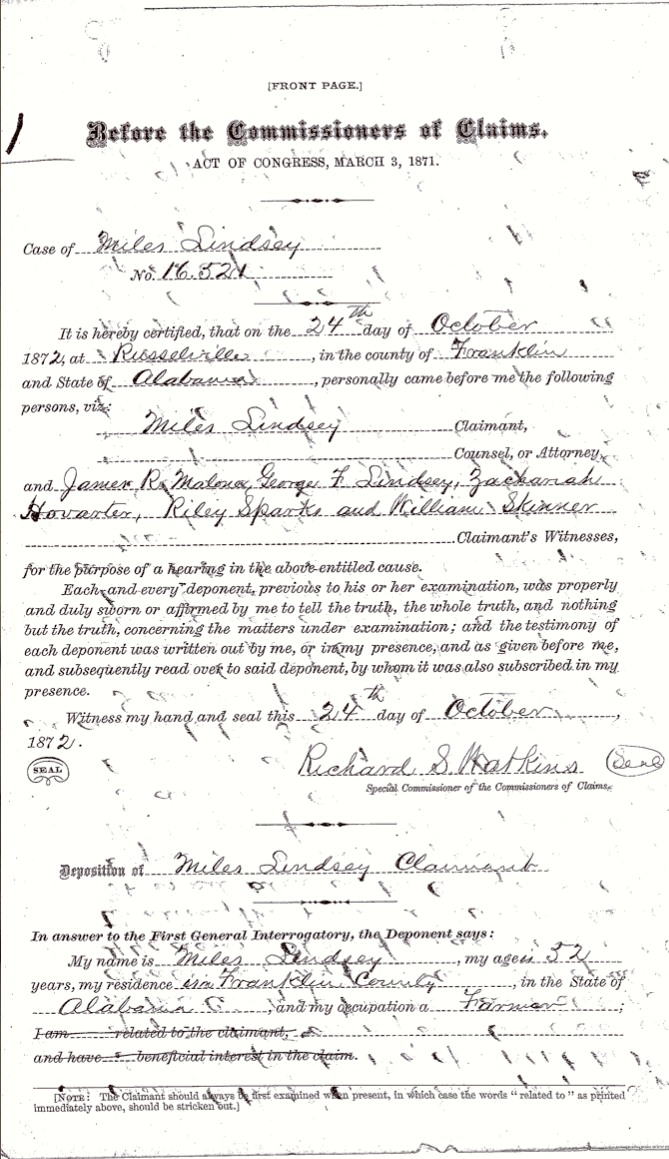 [FRONT PAGE.]
Before the Commissioners of Claims.
ACT OF CONGRESS, MARCH 3, 1871.
Case of Miles Lindsey
No. 16.521
It is hereby certified, that on the 24th day of October
1872, at Russelville, in the county of Franklin
and State of Alabama, personally came before me the following
persons, viz:
Miles Lindsey Claimant,
Counsel, or Attorney,
and James R. Malone, George F. Lindsey, Zachariah
Hovarter, Riley Sparks and William Skinner
Claimant's Witnesses,
for the purpose of a hearing in the above-entitled cause.
Each and every deponent, previous to his or her examination, was properly
and duly sworn or affirmed by me to tell the truth, the whole truth, and nothing
but the truth, concerning the matters under examination; and the testimony of
each deponent was written out by me, or in my presence, and as given before me,
and subsequently read over to said deponent, by whom it was also subscribed in my
presence.
Witness my hand and seal this 24th day of October,
1872.
Richard S. Watkins Seal
SEAL
Special Commissioner of the Commissioners of Claims.
Deposition of Miles Lindsey Claimant
In answer to the First General Interrogatory, the Deponent says:
My name is Miles Lindsey, my age is 52
years, my residence is in Franklin County, in the State of
Alabama, and my occupation a Farmer;
I am related to the claimant,
and have beneficial interest in the claim.
[NOTE: The Claimant should always be first examined when present, in which case the words "related to" as printed
immediately above, should be stricken out.]